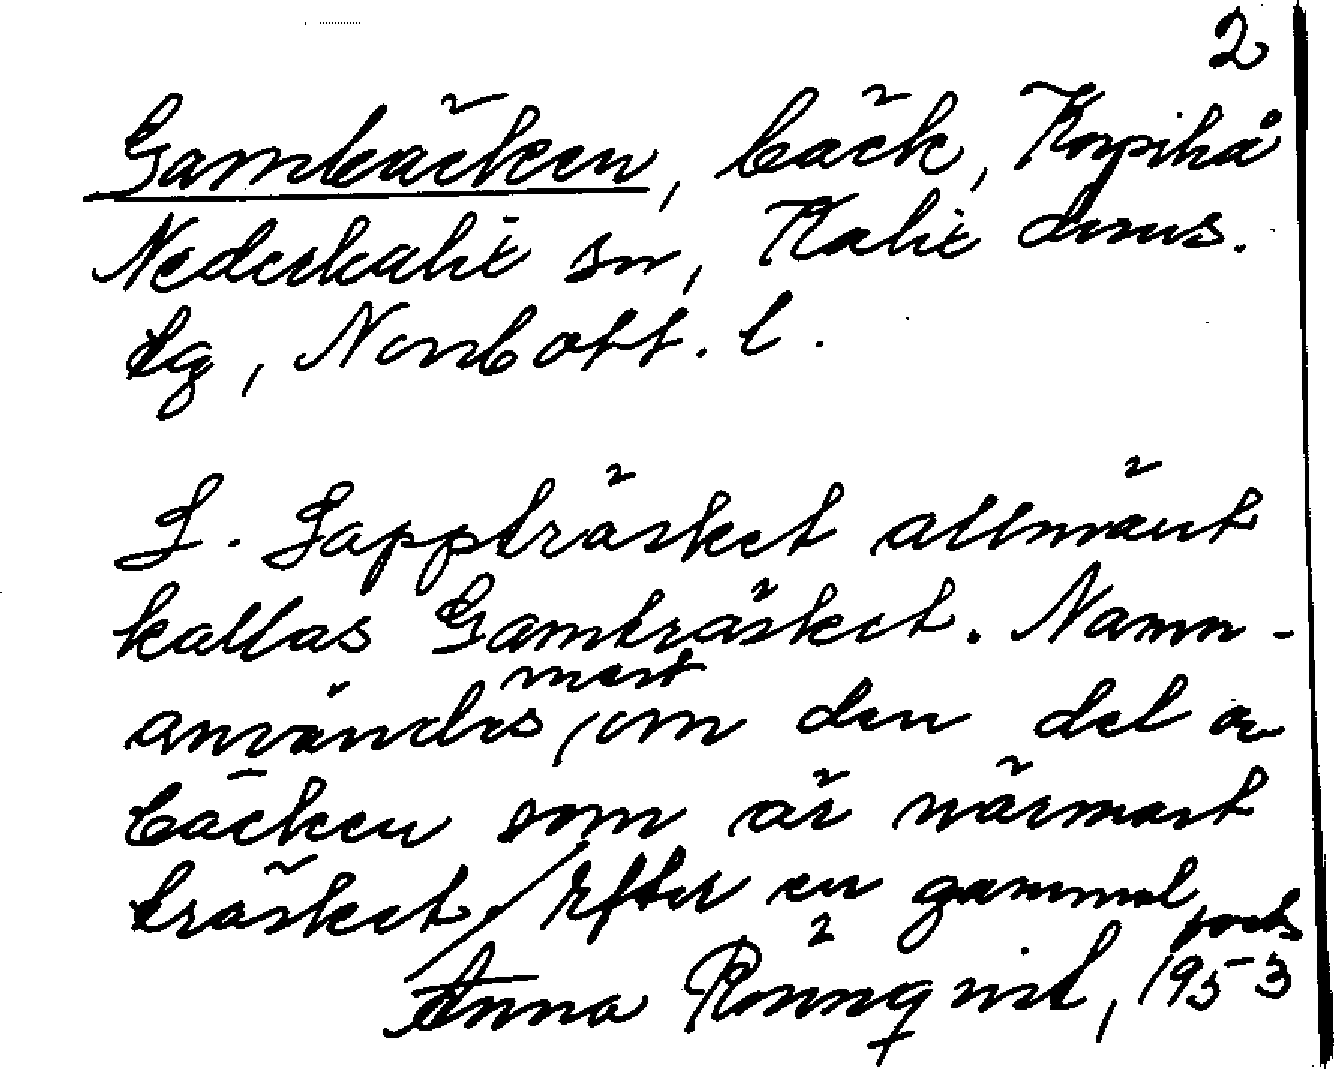 2
Gambäcken, bäck, Korpikå
Nederkalix sn, Kalix doms.
lg, Norrbott. l.
L. Lappträsket allmänt
kallas Gamträsket. Namn-
användes mest om den del av
bäcken som är närmast
träsket / Efter en gammal
Anna Rönnqvist, 1953